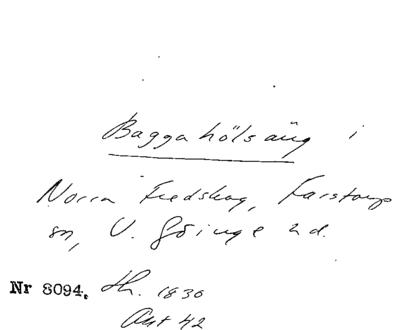 Baggahölsäng i
Norra Fredskog, Farstorps
sn, V. Göinge hd.
Nr 8094. Th. 1830
Akt 42